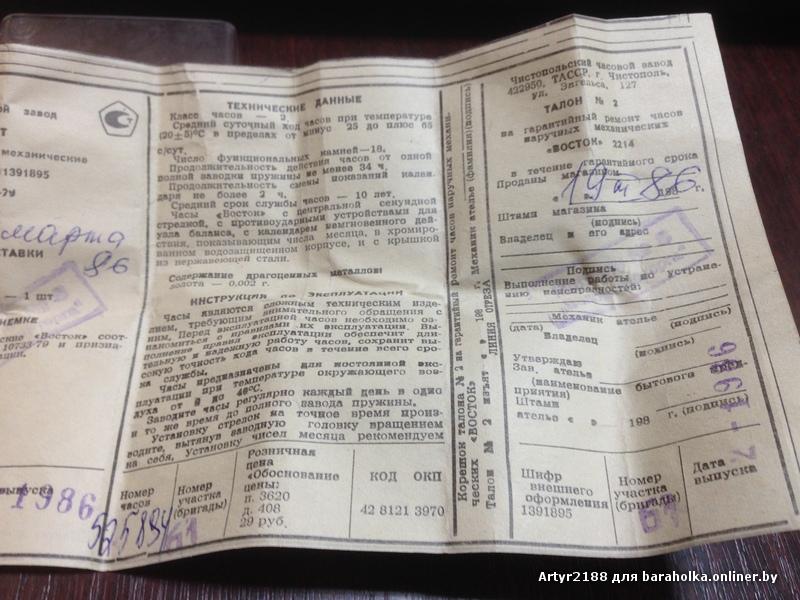 ой завод
Т
механические
1391895
-79
марта
86
СТАВКИ
— 1 шт
ИЕМКЕ
ские «Восток» соот-
10733-79 и призна-
выпуска
1986
ТЕХНИЧЕСКИЕ ДАННЫЕ
Класс часов — 2.
Средний суточный ход часов при температуре
(20±5)°С в пределах от минус 25 до плюс 65
с/сут.
Число функциональных камней—18.
Продолжительность действия часов от одной
полной заводки пружины не менее 34 ч.
Продолжительность смены показаний кален-
даря не более 2 ч.
Средний срок службы часов — 10 лет.
Часы «Восток» с центральной секундной
стрелкой, с противоударными устройствами для
узла баланса, с календарем немгновенного дей-
ствия, показывающим числа месяца, в хромиро-
ванном водозащищенном корпусе, и с крышкой
из нержавеющей стали.
Содержание драгоценных металлов:
золота — 0,002 г.
ИНСТРУКЦИЯ по ЭКСПЛУАТАЦИИ
Часы являются сложным техническим изде-
лием, требующим внимательного обращения с
ними. Перед эксплуатацией часов необходимо оз-
накомиться с правилами их эксплуатации. Вы-
полнение правил эксплуатации обеспечит дли-
тельную надежную работу часов, сохранит вы-
сокую точность хода часов в течение всего сро-
ка службы.
Часы предназначены для постоянной экс-
плуатации при температуре окружающего воз-
духа от 0 до 40°С.
Заводите часы регулярно каждый день в одно
и то же время до полного завода пружины.
Установку стрелок на точное время произ-
водите, вытянув заводную головку вращением
на себя, Установку чисел месяца рекомендуем
Номер
часов
525894
Номер
участка
(бригады)
61
Розничная
цена
«Обоснование
цены:
п. 3620
д. 408
29 руб.
КОД ОКП
42 8121 3970
Корешок талона № 2 на гарантийный ремонт часов наручных механи-
ческих «ВОСТОК»
Талон № 2 изъят « » 198 г. Механик ателье (фамилия) (подпись)
ЛИНИЯ ОТРЕЗА
Чистопольский часовой завод
422950, ТАССР, г. Чистополь,
ул. Энгельса, 127
ТАЛОН № 2
на гарантийный ремонт часов
наручных механических
«ВОСТОК» 2214
в течение гарантийного срока
Проданы магазином
« » 198 г.
Штамп магазина
(подпись)
Владелец и его адрес
Подпись
Выполнение работы по устране-
нию неисправностей:
Механик ателье (подпись)
(дата)
Владелец
(подпись)
Утверждаю
Зав. ателье
(наименование бытового пред-
приятия)
Штамп
ателье « » 198 г. (подпись)
Шифр
внешнего
оформления
1391895
Номер
участка
(бригады)
61
Дата
выпуска
Artyr2188 для baraholka.onliner.by